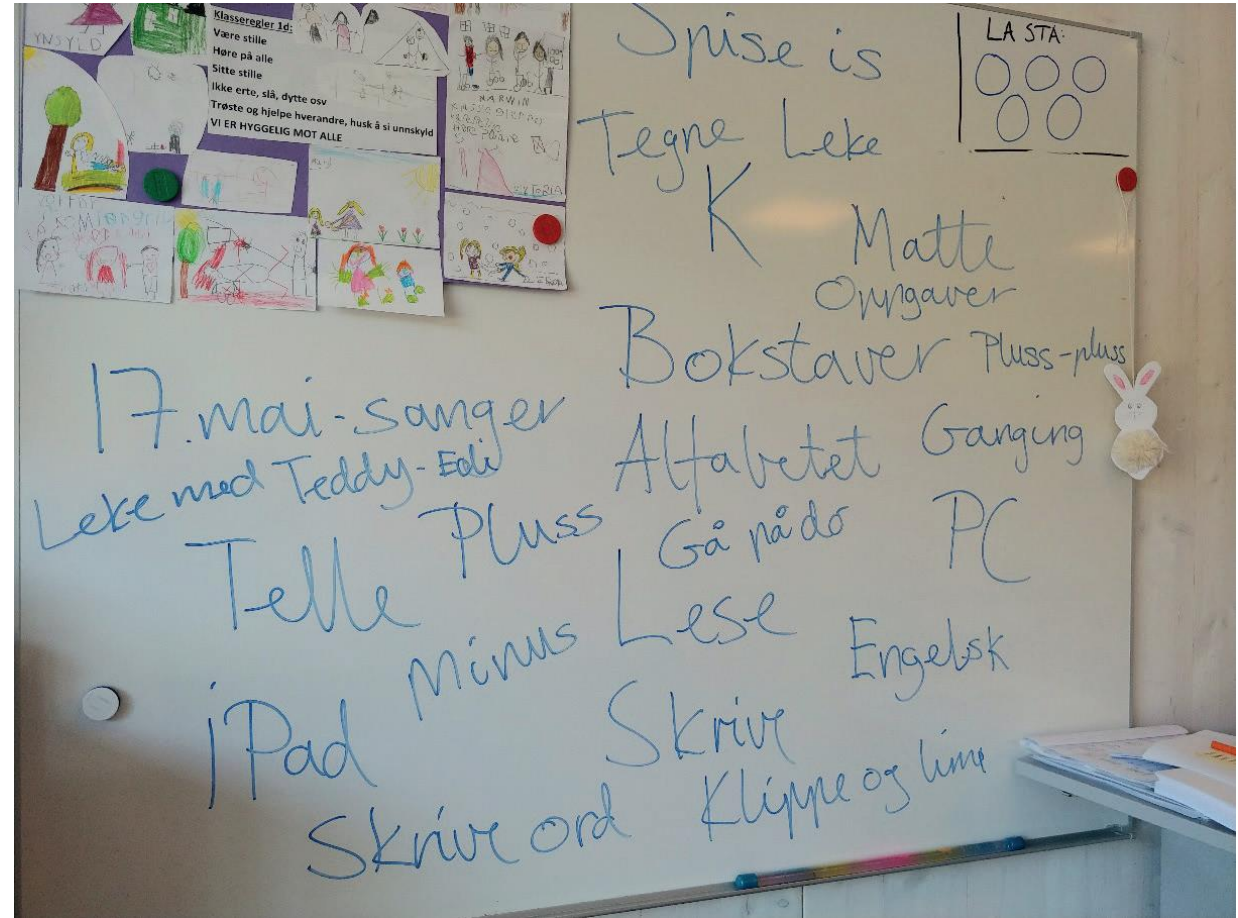 Klasseregler 1d:
Være stille
Høre på alle
Sitte stille
Ikke erte, slå, dytte osv
Trøste og hjelpe hverandre, husk å si unnskyld
VI ER HYGGELIG MOT ALLE
MARWIN
LA STÅ:
Spise is
Tegne Leke
K
Matte
Oppgaver
Bokstaver
Pluss-pluss
17.mai-sanger
Alfabetet
Ganging
Leke med Teddy-Edi
Pluss
Gå på do
PC
Telle
Minus
Lese
Engelsk
iPad
Skrive
Skrive ord
Klippe og lime